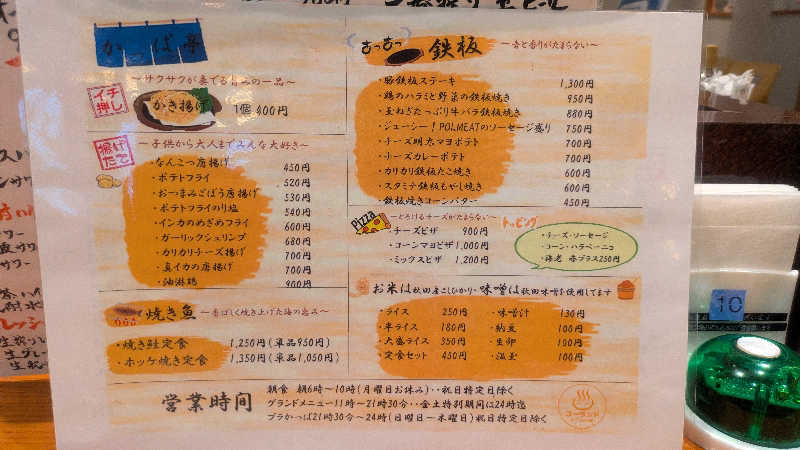 かっぱ亭
～サクサクが奏でる旨みの一品～
イチ押し
かき揚げ 1個 400円
揚げたて
～子供から大人までみんな大好き～
・なんこつ唐揚げ 450円
・ポテトフライ 520円
・おつまみごぼう唐揚げ 530円
・ポテトフライのり塩 540円
・インカのめざめフライ 600円
・ガーリックシュリンプ 680円
・カリカリチーズ揚げ 700円
・真イカの唐揚げ 700円
・油淋鶏 900円
焼き魚 ～香ばしく焼き上げた海の恵み～
・焼き鮭定食 1,250円(単品950円)
・ホッケ焼き定食 1,350円(単品1,050円)
あっつあつ 鉄板 ～音と香りがたまらない～
・豚鉄板ステーキ 1,300円
・鶏のハラミと野菜の鉄板焼き 950円
・玉ねぎたっぷり牛バラ鉄板焼き 880円
・ジューシー！POLMEATのソーセージ盛り 750円
・チーズ明太マヨポテト 700円
・チーズカレーポテト 700円
・カリカリ鉄板たこ焼き 600円
・スタミナ鉄板もやし焼き 600円
・鉄板焼きコーンバター 450円
Pizza ～とろけるチーズがたまらない～
・チーズピザ 900円
・コーンマヨピザ 1,000円
・ミックスピザ 1,200円
トッピング
・チーズ・ソーセージ
・コーン・ハラペーニョ
・海老 各プラス250円
お米は秋田産こしひかり・味噌は秋田味噌を使用してます
・ライス 250円 ・味噌汁 130円
・半ライス 180円 ・納豆 100円
・大盛ライス 350円 ・生卵 100円
・定食セット 450円 ・温玉 100円
営業時間
朝食 朝6時～10時(月曜日お休み)‥祝日特定日除く
グランドメニュー11時～21時30分‥金土特別期間は24時迄
プラかっぱ21時30分～24時(日曜日～木曜日)祝日特定日除く
10